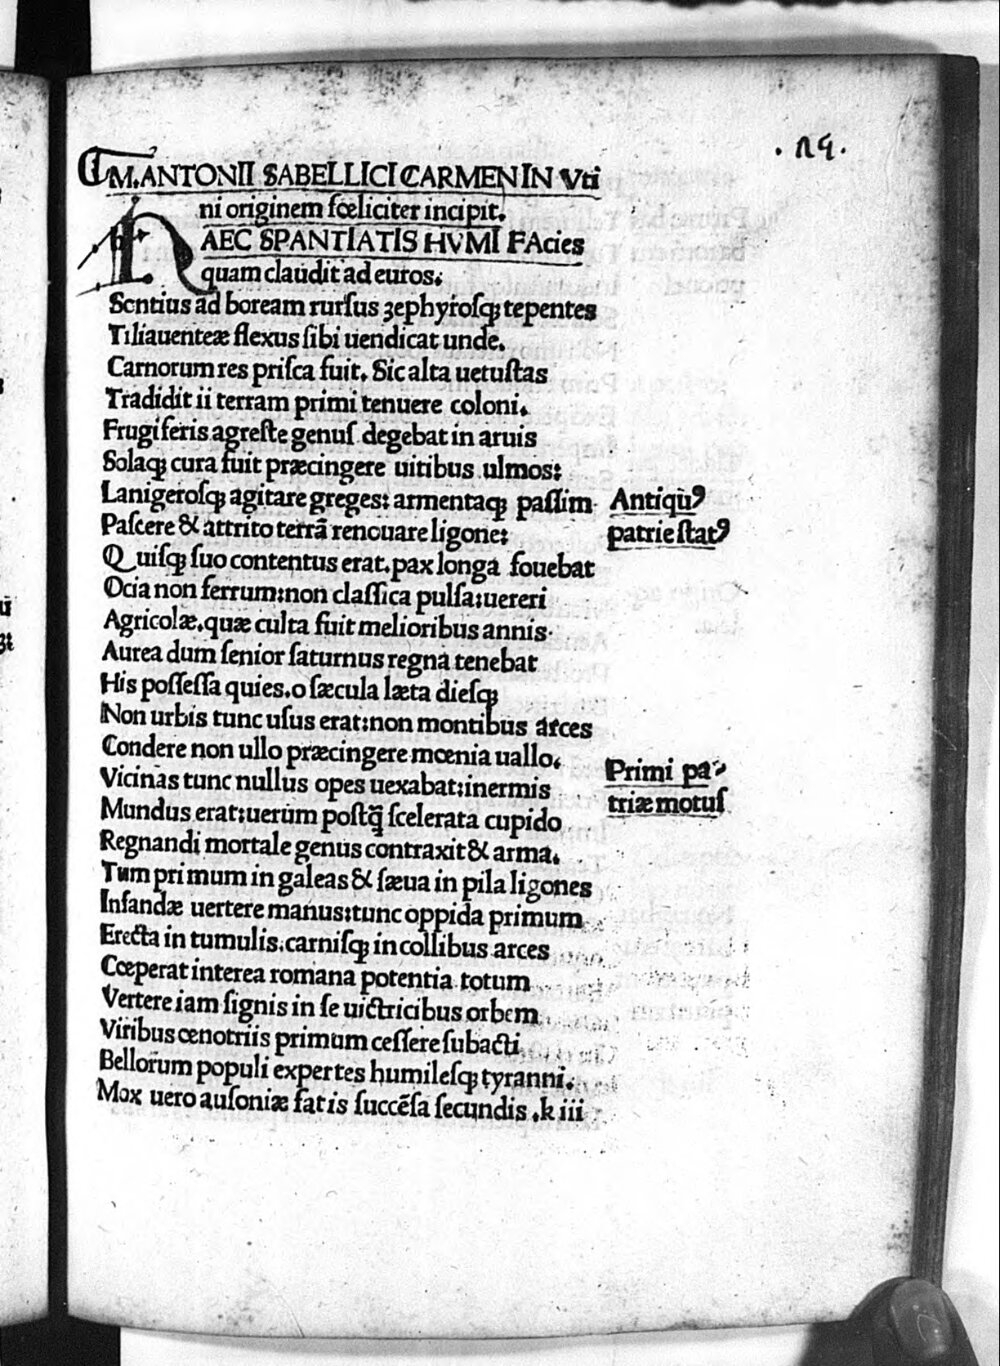 .M.ANTONII SABELLICI CARMEN IN Vti
ni originem fœliciter incipit.
HAEC SPANTIATIS HVMI FAcies
quam claudit ad euros:
Sontius ad boream rurſus ʒephyroſqꝫ tepentes
Tiliauenteæ flexus ſibi uendicat unde.
Carnorum res priſca fuit. Sic alta uetuſtas
Tradidit ii terram primi tenuere coloni.
Frugiferis agreſte genuſ degebat in aruis
Solaqꝫ cura fuit præcingere uitibus ulmos:
Lanigeroſqꝫ agitare greges: armentaqꝫ paſſim
Antiqūꝰ
Paſcere & attrito terrā renouare ligone:
patrie ſtatꝰ
Quiſqꝫ ſuo contentus erat. pax longa fouebat
Ocia non ferrum: non claſſica pulſa: uereri
Agricolæ. quæ culta fuit melioribus annis
Aurea dum ſenior ſaturnus regna tenebat
His poſſeſſa quies. o ſæcula læta dieſqꝫ
Non urbis tunc uſus erat: non montibus arces
Condere non ullo præcingere mœnia uallo.
Primi pa-
Vicinas tunc nullus opes uexabat: inermis
triæ motuſ
Mundus erat: uerum poſtq̄ ſcelerata cupido
Regnandi mortale genus contraxit & arma.
Tum primum in galeas & ſæua in pila ligones
Infandæ uertere manus: tunc oppida primum
Erecta in tumulis. carniſqꝫ in collibus arces
Cœperat interea romana potentia totum
Vertere iam ſignis in ſe uictricibus orbem
Viribus œnotriis primum ceſſere ſubacti
Bellorum populi expertes humileſqꝫ tyranni.
Mox uero auſoniæ fatis ſuccēſa ſecundis .k iii